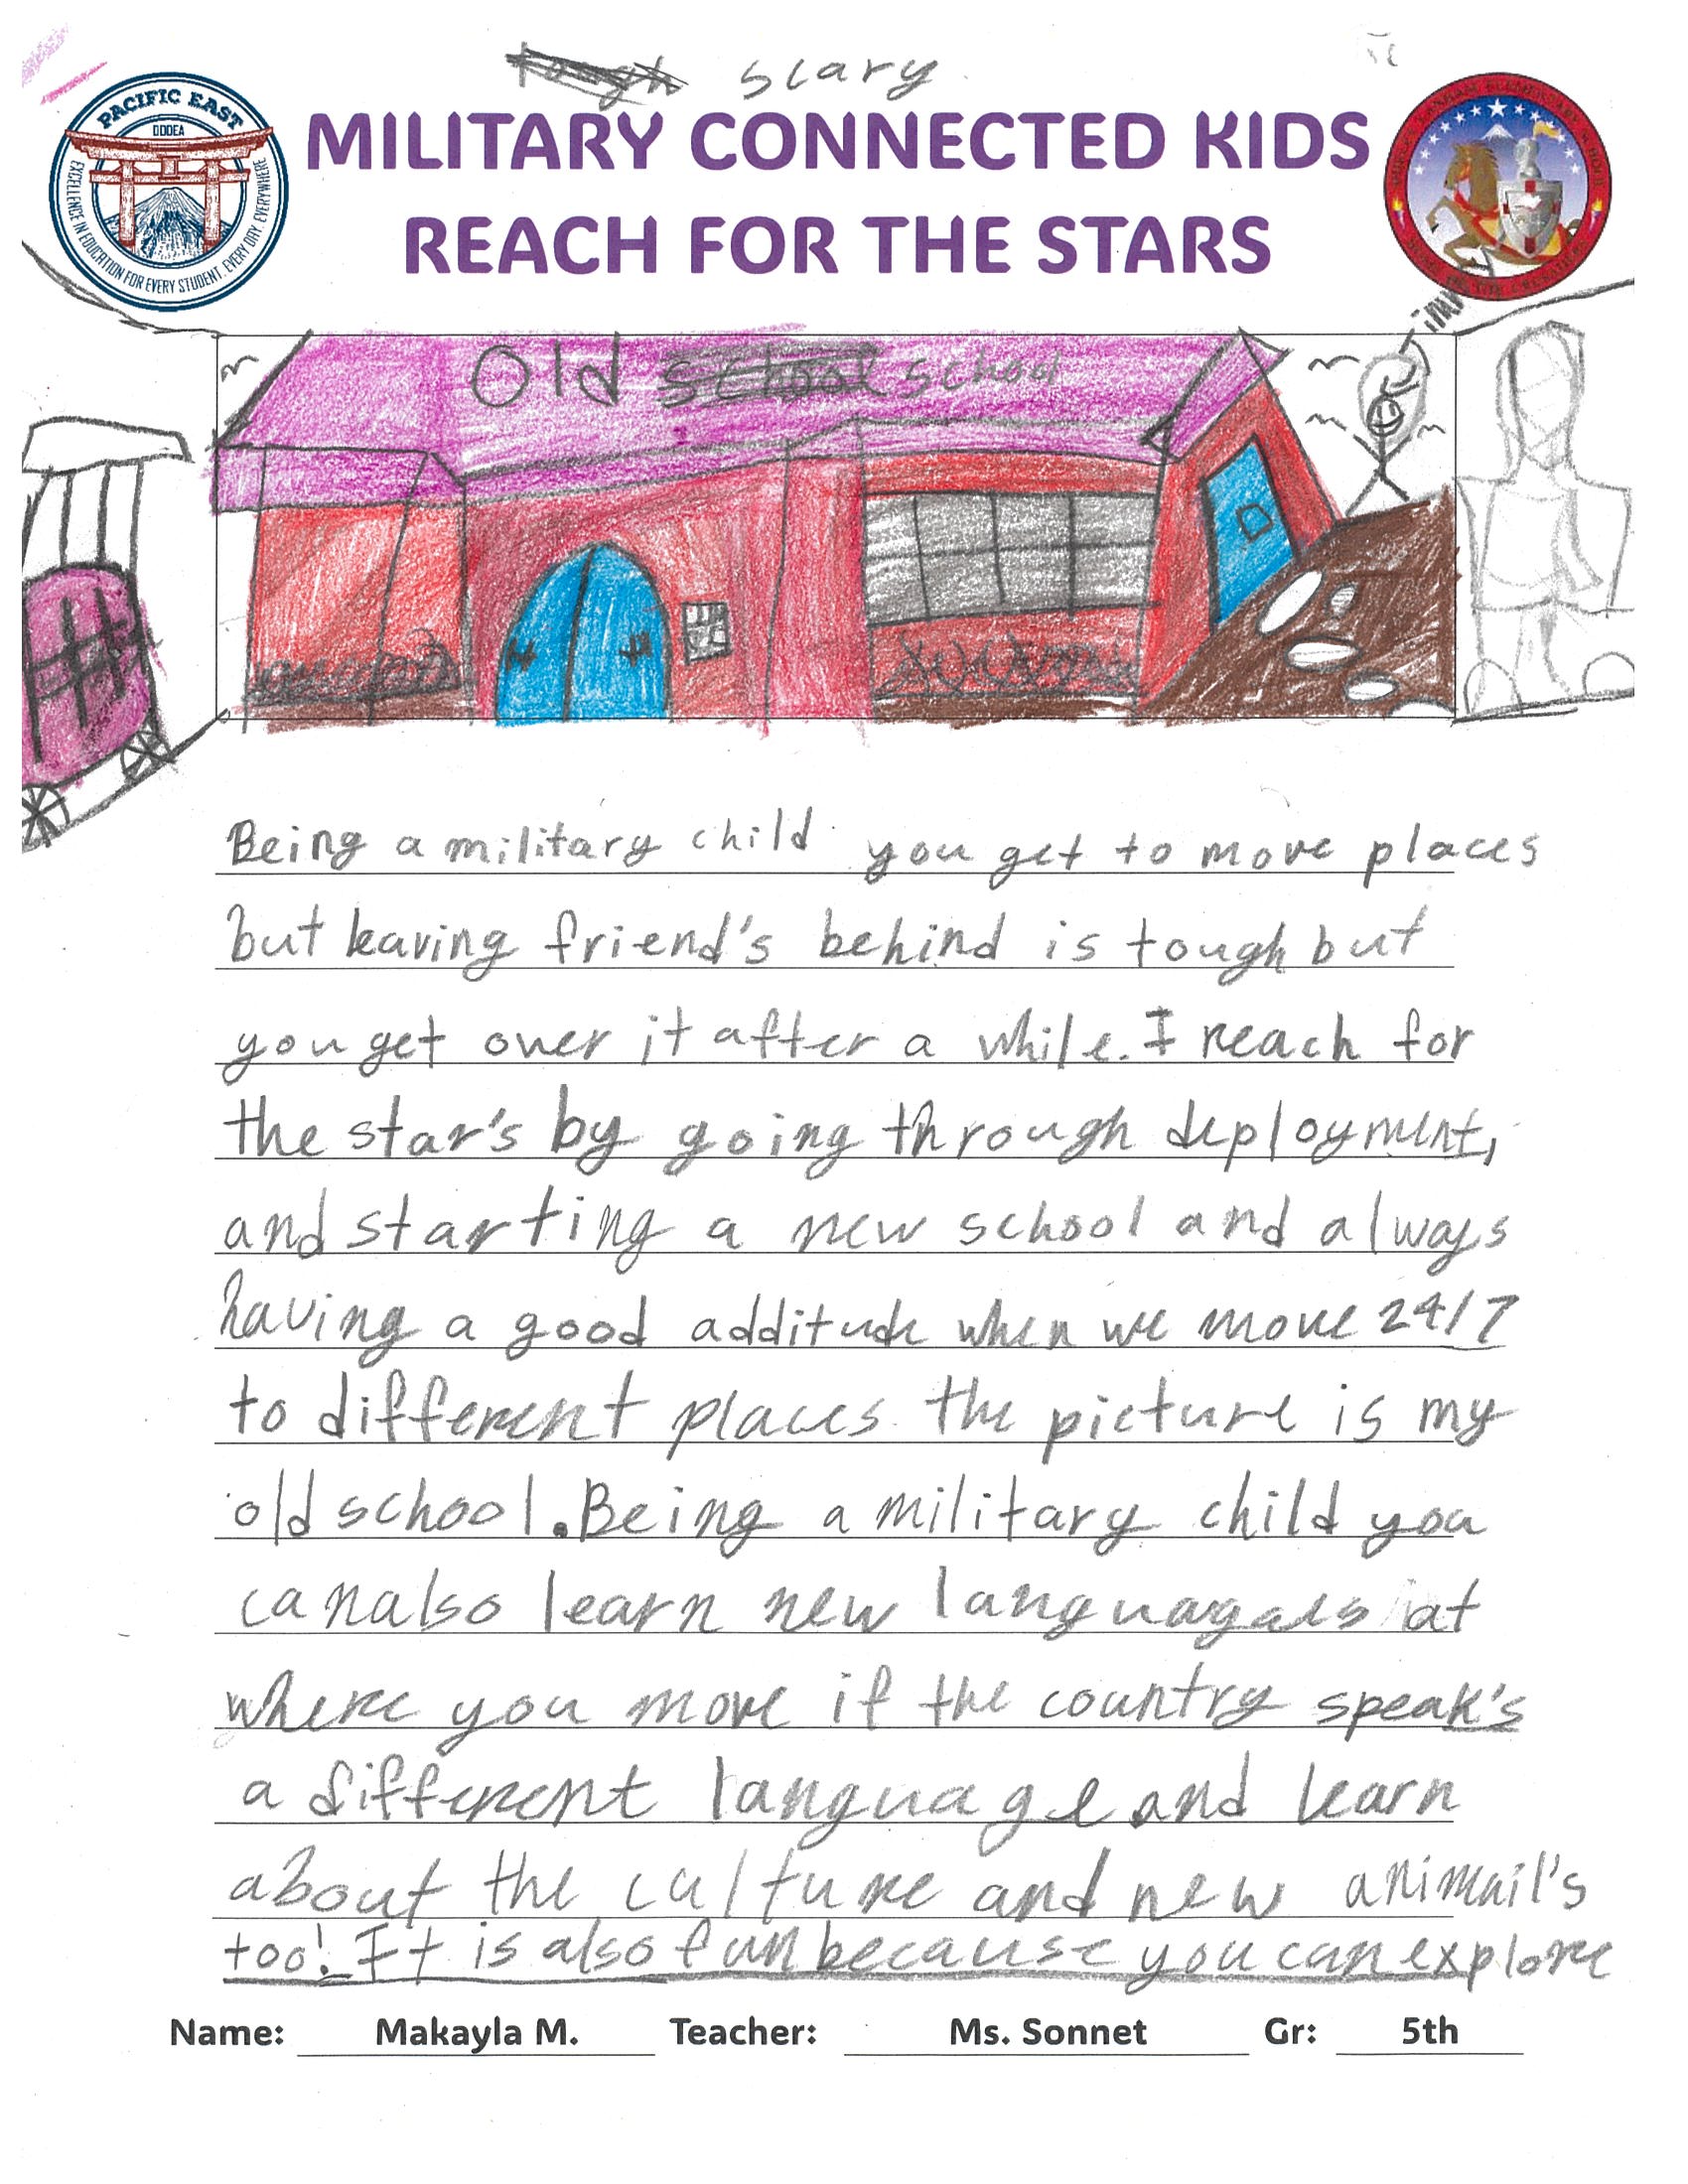 tough scary
PACIFIC EAST
DODEA
EXCELLENCE IN EDUCATION FOR EVERY STUDENT, EVERY DAY, EVERYWHERE
MILITARY CONNECTED KIDS
REACH FOR THE STARS
Old school school
Being a military child you get to move places
but leaving friend's behind is tough but
you get over it after a while. I reach for
the star's by going through deployment,
and starting a new school and always
having a good additude when we move 24/7
to different places the picture is my
old school. Being a military child you
can also learn new languagaes at
where you move if the country speak's
a different language and learn
about the culture and new animail's
too! It is also fun because you can explore
Name: Makayla M. Teacher: Ms. Sonnet Gr: 5th